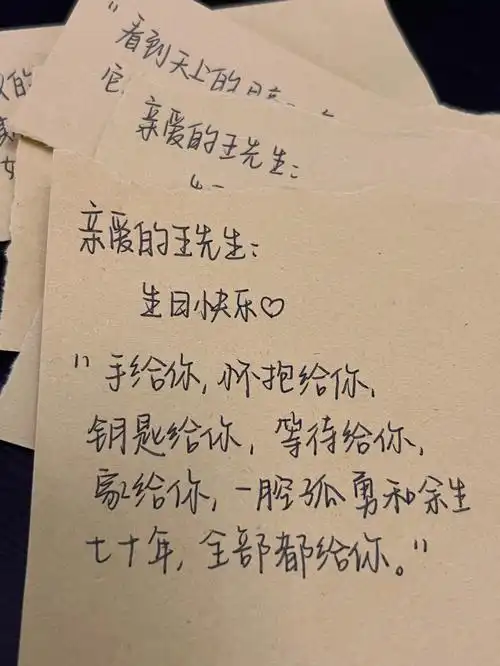 "看到天上的
它
的
亲爱的王先生:
亲爱的王先生:
生日快乐♡
"手给你,怀抱给你,
钥匙给你,等待给你,
家给你,一腔孤勇和余生
七十年,全部都给你。"